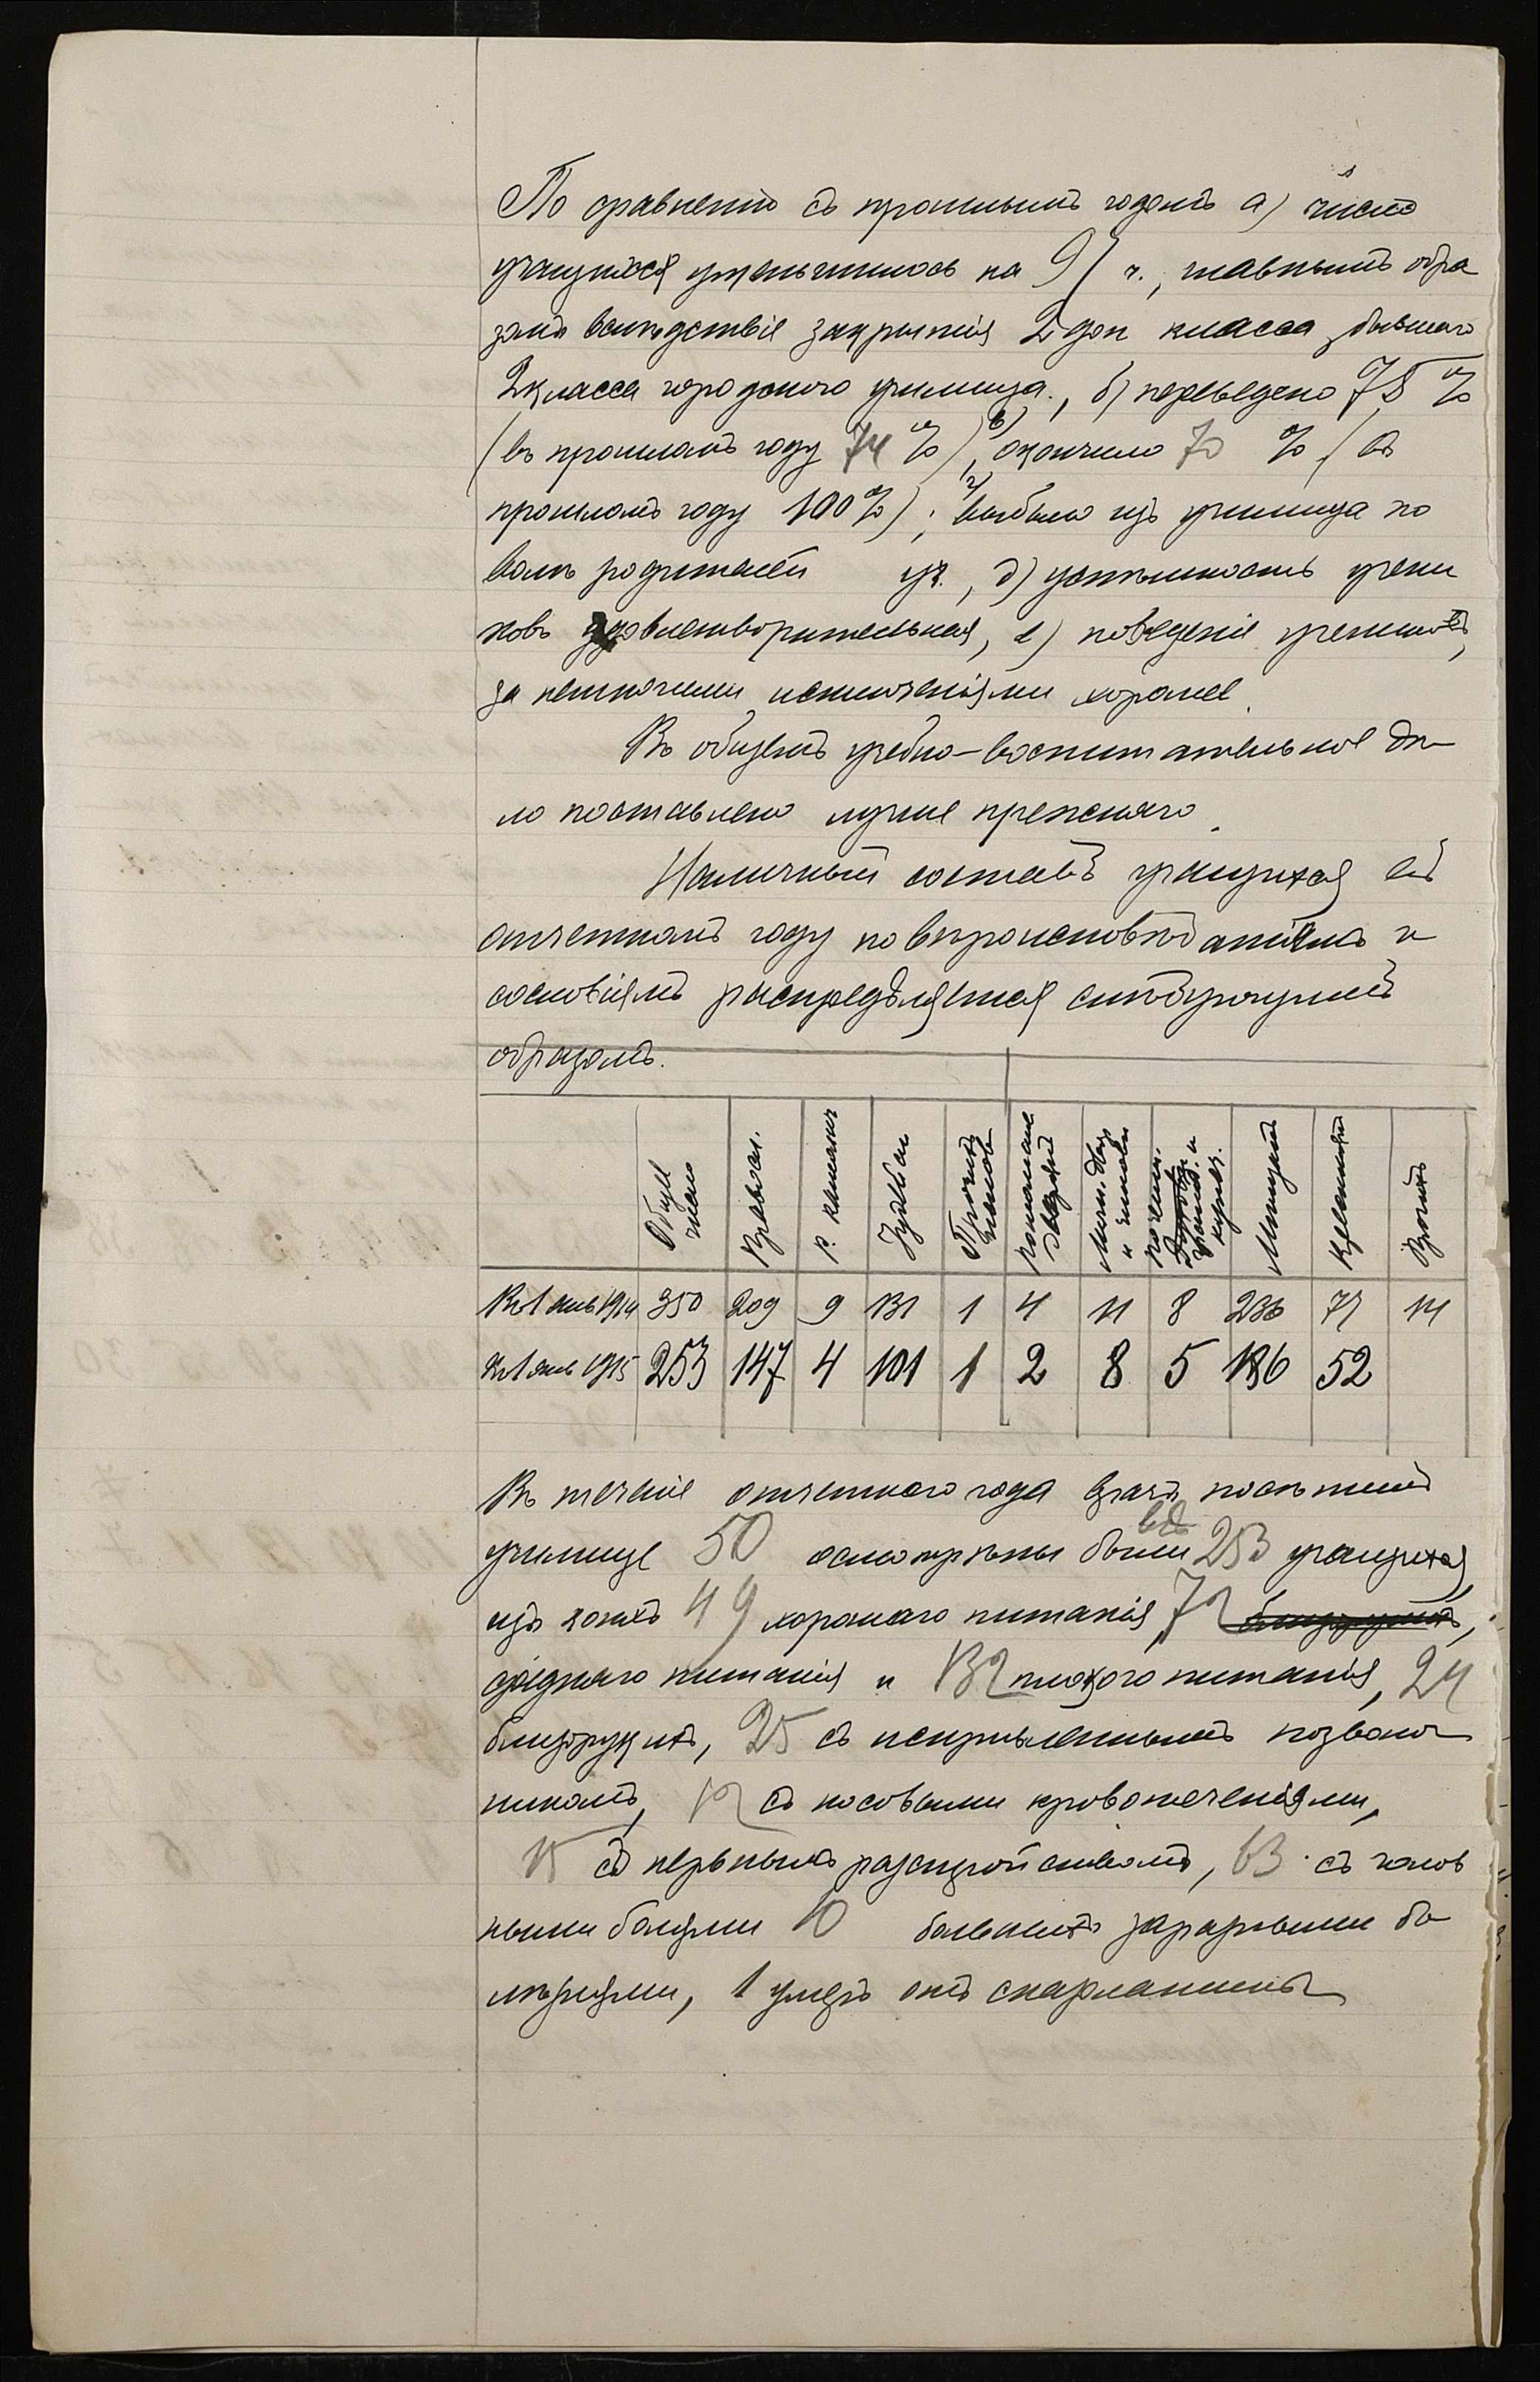 По сравненію съ прошлымъ годомъ а) число
учащихся уменьшилось на 97 ч., главнымъ обра
зомъ вслѣдствіе закрытія 2 доп класса бывшаго
2класса городского училища., б) переведено 75 %
(въ прошломъ году 74 %), в) окончило 70 % (въ
прошломъ году 100%); г) выбыло изъ училища по
волѣ родителей уч., д) успѣшность учени
ковъ удовлетворительная, е) поведеніе учениковъ,
за немногими исключеніями хорошее.
Въ общемъ учебно-воспитательное дѣ
ло поставлено лучше прежняго.
Наличный составъ учащихся въ
отчетномъ году по вѣроисповѣданіямъ и
сословіямъ распредѣляется слѣдующимъ
образомъ.
Общее число Православ. р. католич Іудейск Прочихъ Личн. двор и чиновн почетн. гражд. и купеч. Мѣщанъ Крестьянъ
Къ 1 янв 1914 350 209 9 131 1 4 11 8 236 77 14
Къ 1 янв 1915 253 147 4 101 1 2 8 5 186 52
Въ теченіе отчетнаго года врачъ посѣтилъ
училище 50 осмотрѣны были всѣ 253 учащихся,
изъ коихъ 49 хорошаго питанія, 72 близорукихъ,
средняго питанія и 132 плохого питанія, 24
близорукихъ, 25 съ искривленнымъ позвоноч
никомъ, 12 съ носовыми кровотеченіями,
15 съ нервнымъ разстройствомъ, 63 съ голов
ными болями 10 больныхъ заразными бо
лѣзнями, 1 умеръ отъ скарлатины